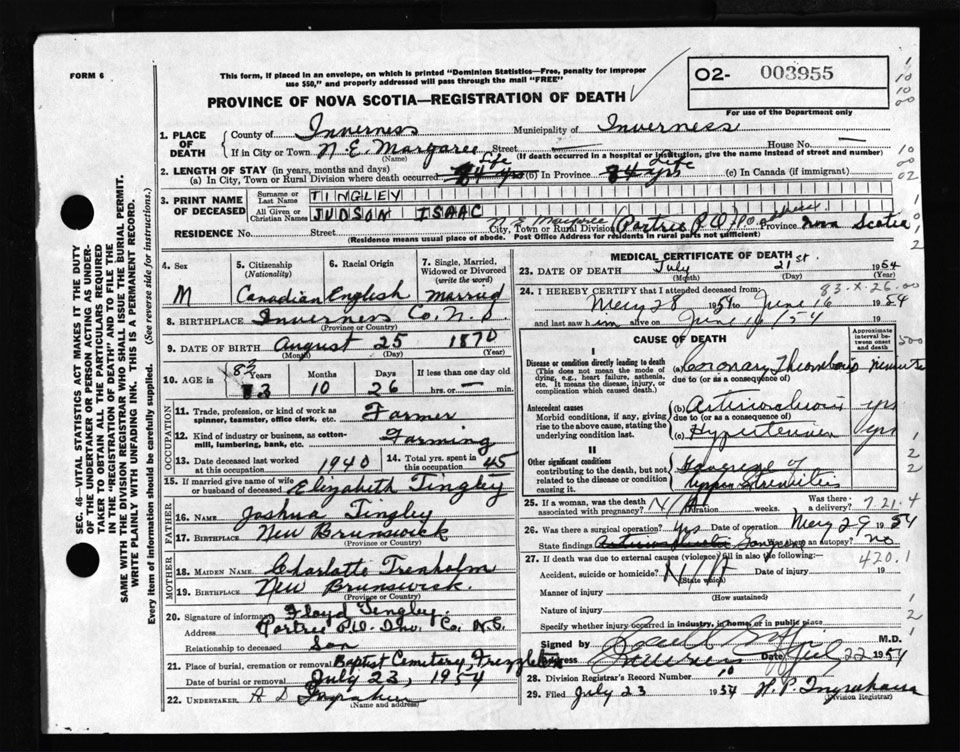 FORM 6
This form, if placed in an envelope, on which is printed "Dominion Statistics—Free, penalty for improper
use $50," and properly addressed will pass through the mail "FREE"
O2- 003955
For use of the Department only
PROVINCE OF NOVA SCOTIA—REGISTRATION OF DEATH
1. PLACE OF DEATH
County of Inverness Municipality of Inverness
If in City or Town N.E. Margaree Street — House No. —
(Name) (If death occurred in a hospital or institution, give the name instead of street and number)
2. LENGTH OF STAY (in years, months and days)
(a) In City, Town or Rural Division where death occurred 84 yrs Life (b) In Province 84 yrs Life (c) In Canada (if immigrant)
3. PRINT NAME OF DECEASED
Surname or Last Name TINGLEY
All Given or Christian Names JUDSON ISAAC
RESIDENCE No. Street N.E. Margaree City, Town or Rural Division (Portree P.O.) P.O. address. Province Nova Scotia
(Residence means usual place of abode. Post Office Address for residents in rural parts not sufficient)
4. Sex M
5. Citizenship (Nationality) Canadian
6. Racial Origin English
7. Single, Married, Widowed or Divorced (write the word) Married
8. BIRTHPLACE Inverness Co. N.S.
(Province or Country)
9. DATE OF BIRTH August 25 1870
(Month) (Day) (Year)
10. AGE in 83 Years 10 Months 26 Days If less than one day old hrs. or — min.
OCCUPATION
11. Trade, profession, or kind of work as spinner, teamster, office clerk, etc. Farmer
12. Kind of industry or business, as cotton-mill, lumbering, bank, etc. Farming
13. Date deceased last worked at this occupation 1940
14. Total yrs. spent in this occupation 45
15. If married give name of wife or husband of deceased Elizabeth Tingley
FATHER
16. Name Joshua Tingley
17. Birthplace New Brunswick
(Province or Country)
MOTHER
18. MAIDEN NAME Charlotte Trenholm
19. BIRTHPLACE New Brunswick.
(Province or Country)
20. Signature of informant Floyd Tingley.
Address Portree P.O. Inv. Co. N.S.
Relationship to deceased Son
21. Place of burial, cremation or removal Baptist Cemetery,
Date of burial or removal July 23, 1954
22. UNDERTAKER A D Ingraham
(Name and address)
MEDICAL CERTIFICATE OF DEATH
23. DATE OF DEATH July 21st 1954
(Month) (Day) (Year)
24. I HEREBY CERTIFY that I attended deceased from:
83-X-26.00
May 28 1954 to June 16 1954
and last saw him alive on June 16/54 19
CAUSE OF DEATH
Approximate interval between onset and death
I
Disease or condition directly leading to death
(This does not mean the mode of dying, e.g., heart failure, asthenia, etc. It means the disease, injury, or complication which caused death.)
(a) Coronary Thrombosis minutes
due to (or as a consequence of)
Antecedent causes
Morbid conditions, if any, giving rise to the above cause, stating the underlying condition last.
(b) Arteriosclerosis yrs
due to (or as a consequence of)
(c) Hypertension yrs
II
Other significant conditions contributing to the death, but not related to the disease or condition causing it.
Gangrene of
25. If a woman, was the death associated with pregnancy? N/A Duration weeks. Was there a delivery? 7.21.4
26. Was there a surgical operation? Yes Date of operation May 29 1954
State findings Gangrene Was there an autopsy? no
27. If death was due to external causes (violence) fill in also the following: 420.1
Accident, suicide or homicide? N/A Date of injury 19
(State which)
Manner of injury
(How sustained)
Nature of injury
Specify whether injury occurred in industry, in home, or in public place
Signed by M.D.
Address Inverness Date July 22 1954
28. Division Registrar's Record Number 10
29. Filed July 23 1954 H. P. Ingraham
(Division Registrar)
SEC. 46—VITAL STATISTICS ACT MAKES IT THE DUTY
OF THE UNDERTAKER OR PERSON ACTING AS UNDER-
TAKER TO OBTAIN ALL THE PARTICULARS REQUIRED
IN THE "REGISTRATION OF DEATH" AND TO FILE THE
SAME WITH THE DIVISION REGISTRAR WHO SHALL ISSUE THE BURIAL PERMIT.
WRITE PLAINLY WITH UNFADING INK. THIS IS A PERMANENT RECORD.
Every item of information should be carefully supplied. (See reverse side for instructions.)